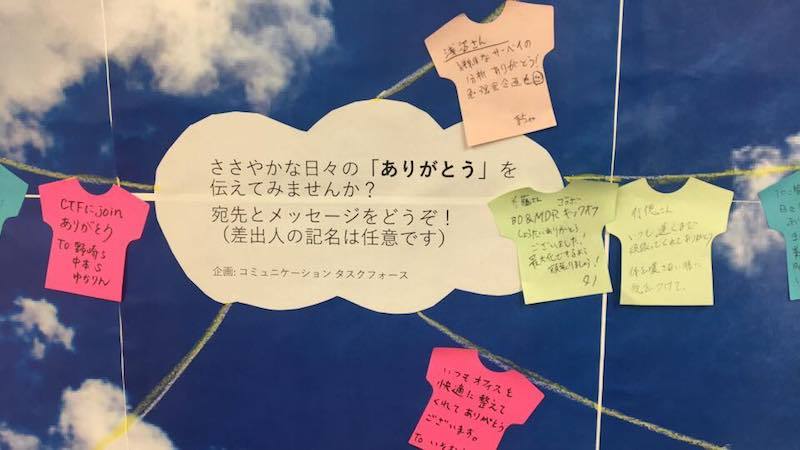 ささやかな日々の「ありがとう」を
伝えてみませんか？
宛先とメッセージをどうぞ！
（差出人の記名は任意です）
企画: コミュニケーション タスクフォース
CTFにjoin
ありがとう
TO 野崎s
中本s
ゆかりん
さん
サーベイの
分析 ありがとう!
勉強会企画も
さん
BD&MDR キックオフ
ありがとう
ございました!
頑張りましょう!
さん
いつも遅くまで
ありがとう
気をつけて。
いつもオフィスを
快適に整えて
くれてありがとう
ございます。
To